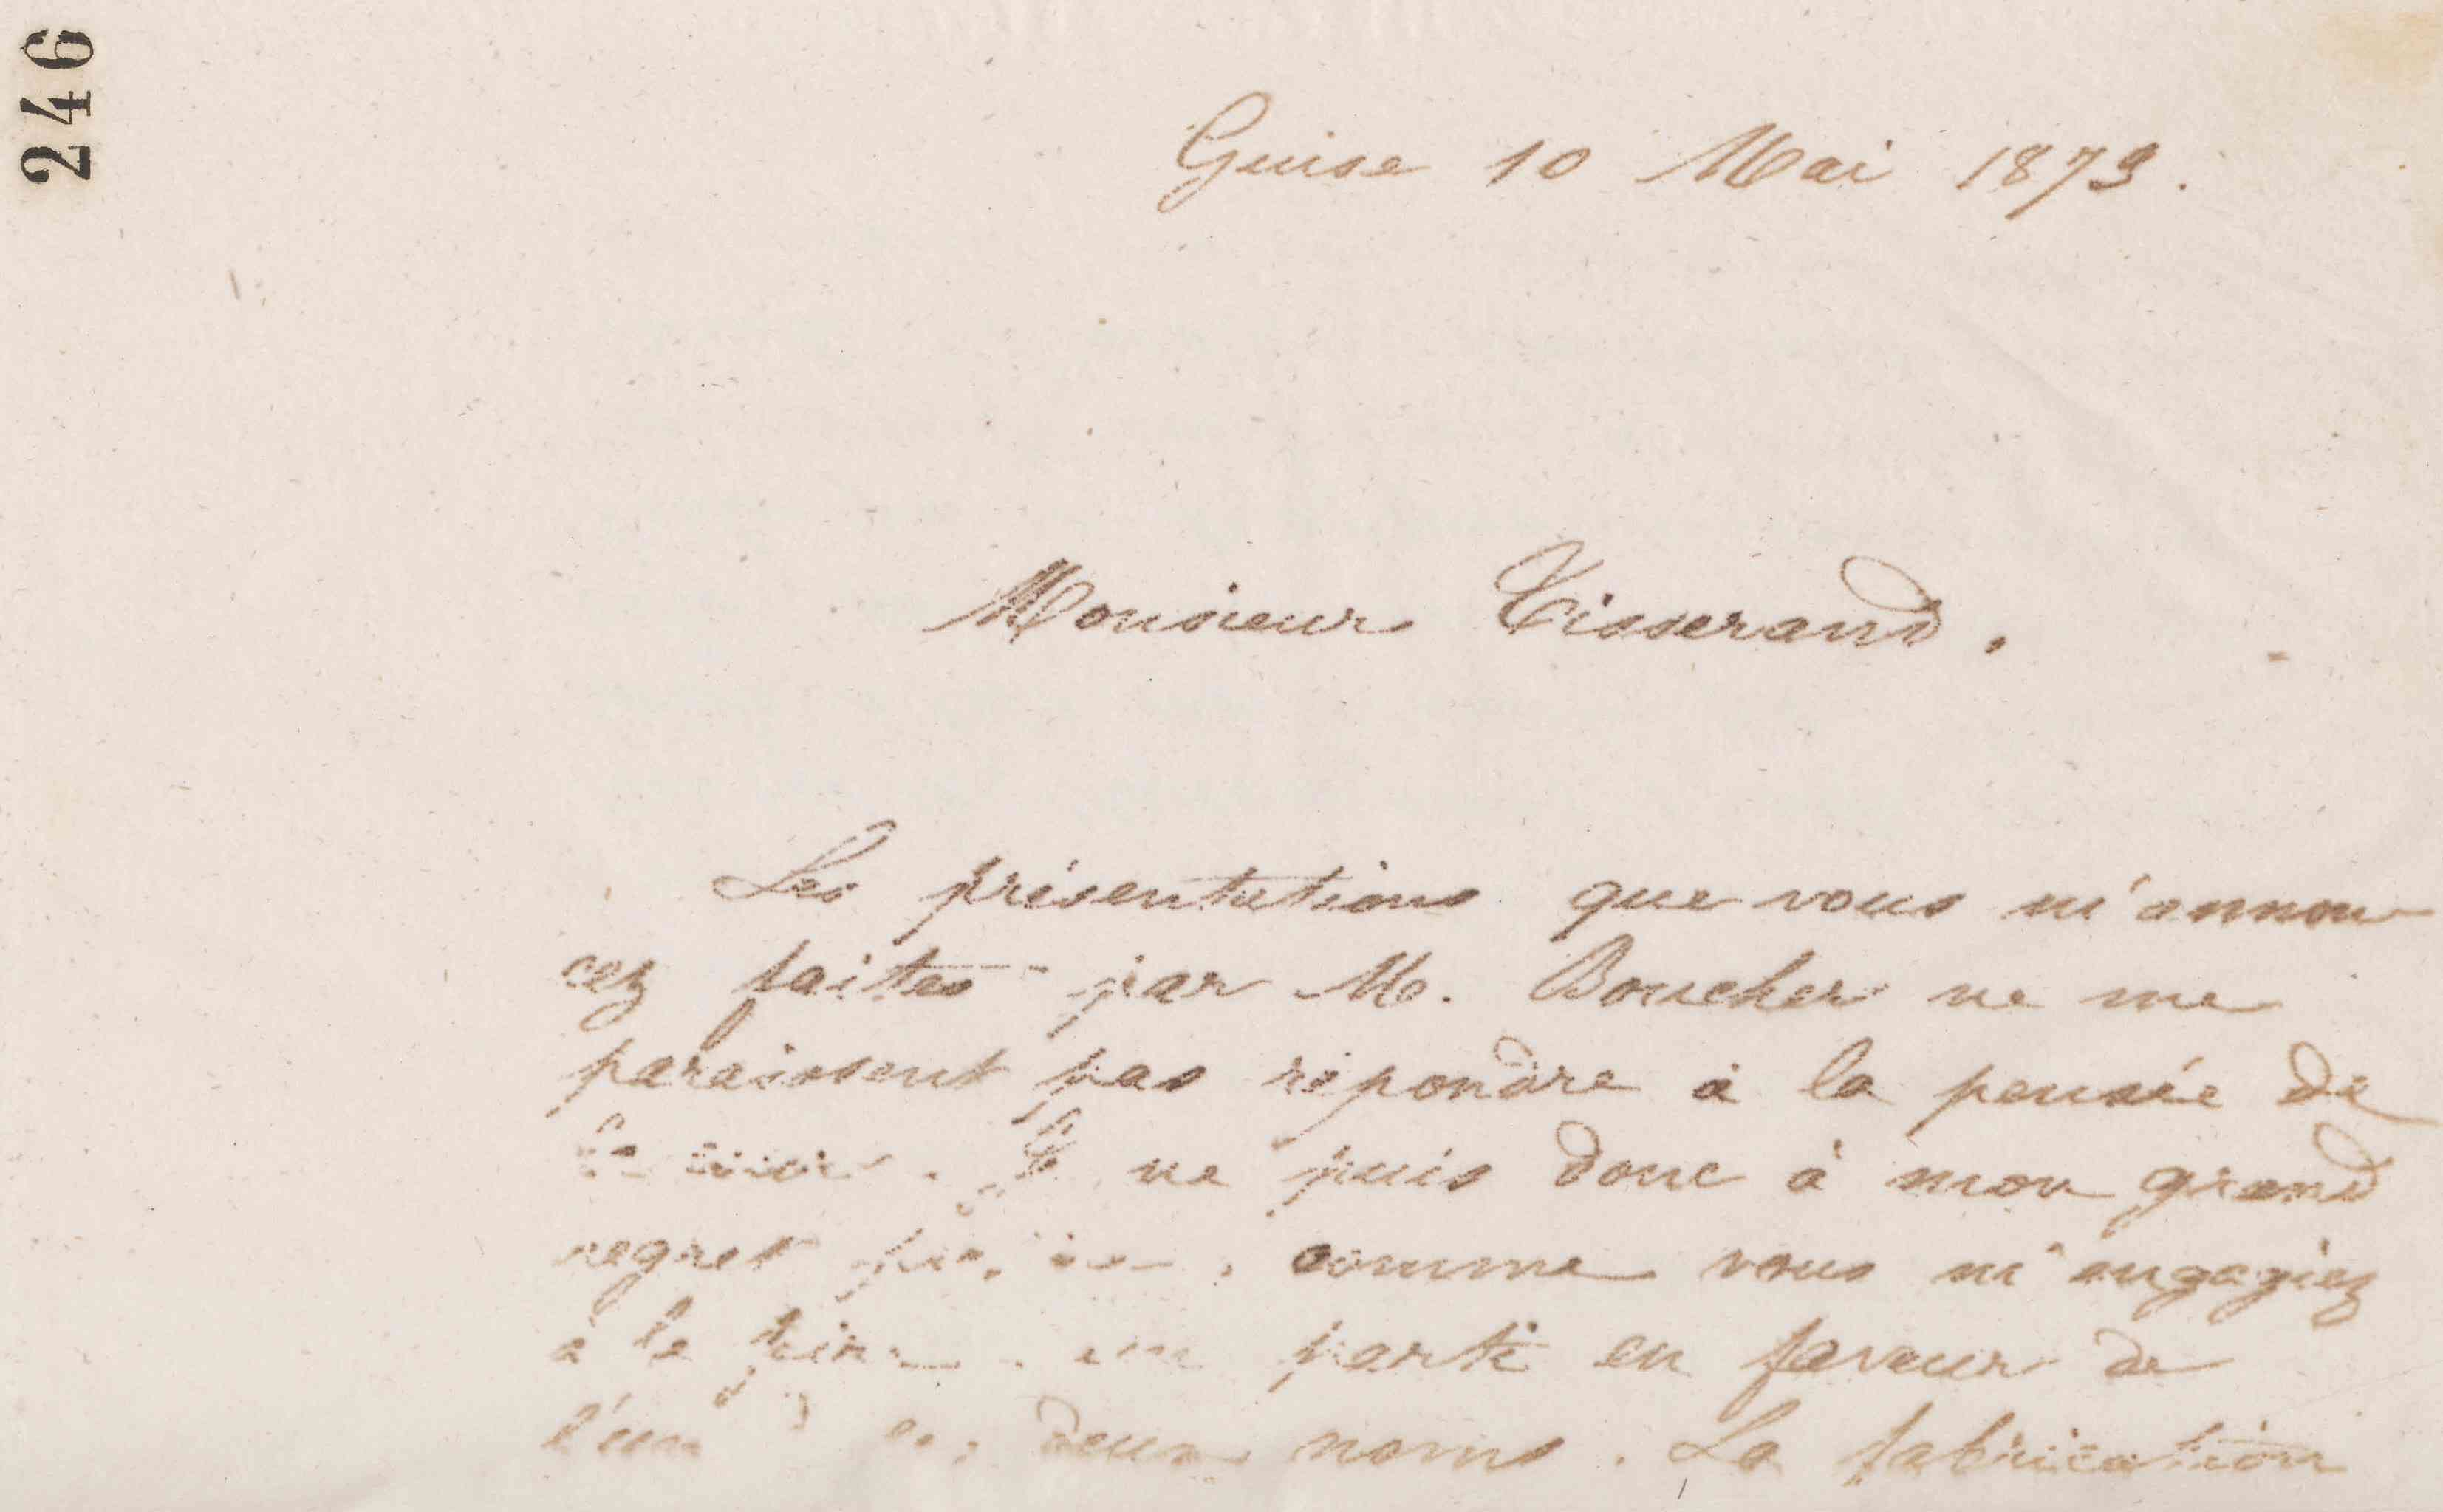 246
Guise 10 Mai 1879.
Monsieur Tisserand.
Les présentations que vous m'annon
cez faites par M. Boucher ne me
paraissent pas répondre à la pensée de
ne puis donc à mon grand
regret comme vous m'engagiez
à le faire un parti en faveur de
l'un deux noms. La fabrication